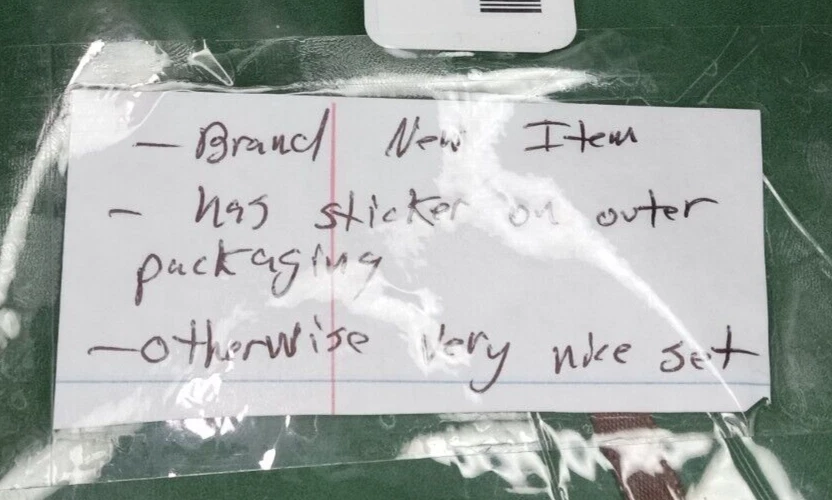 — Brand New Item
- has sticker on outer
packaging
— Otherwise very nice set